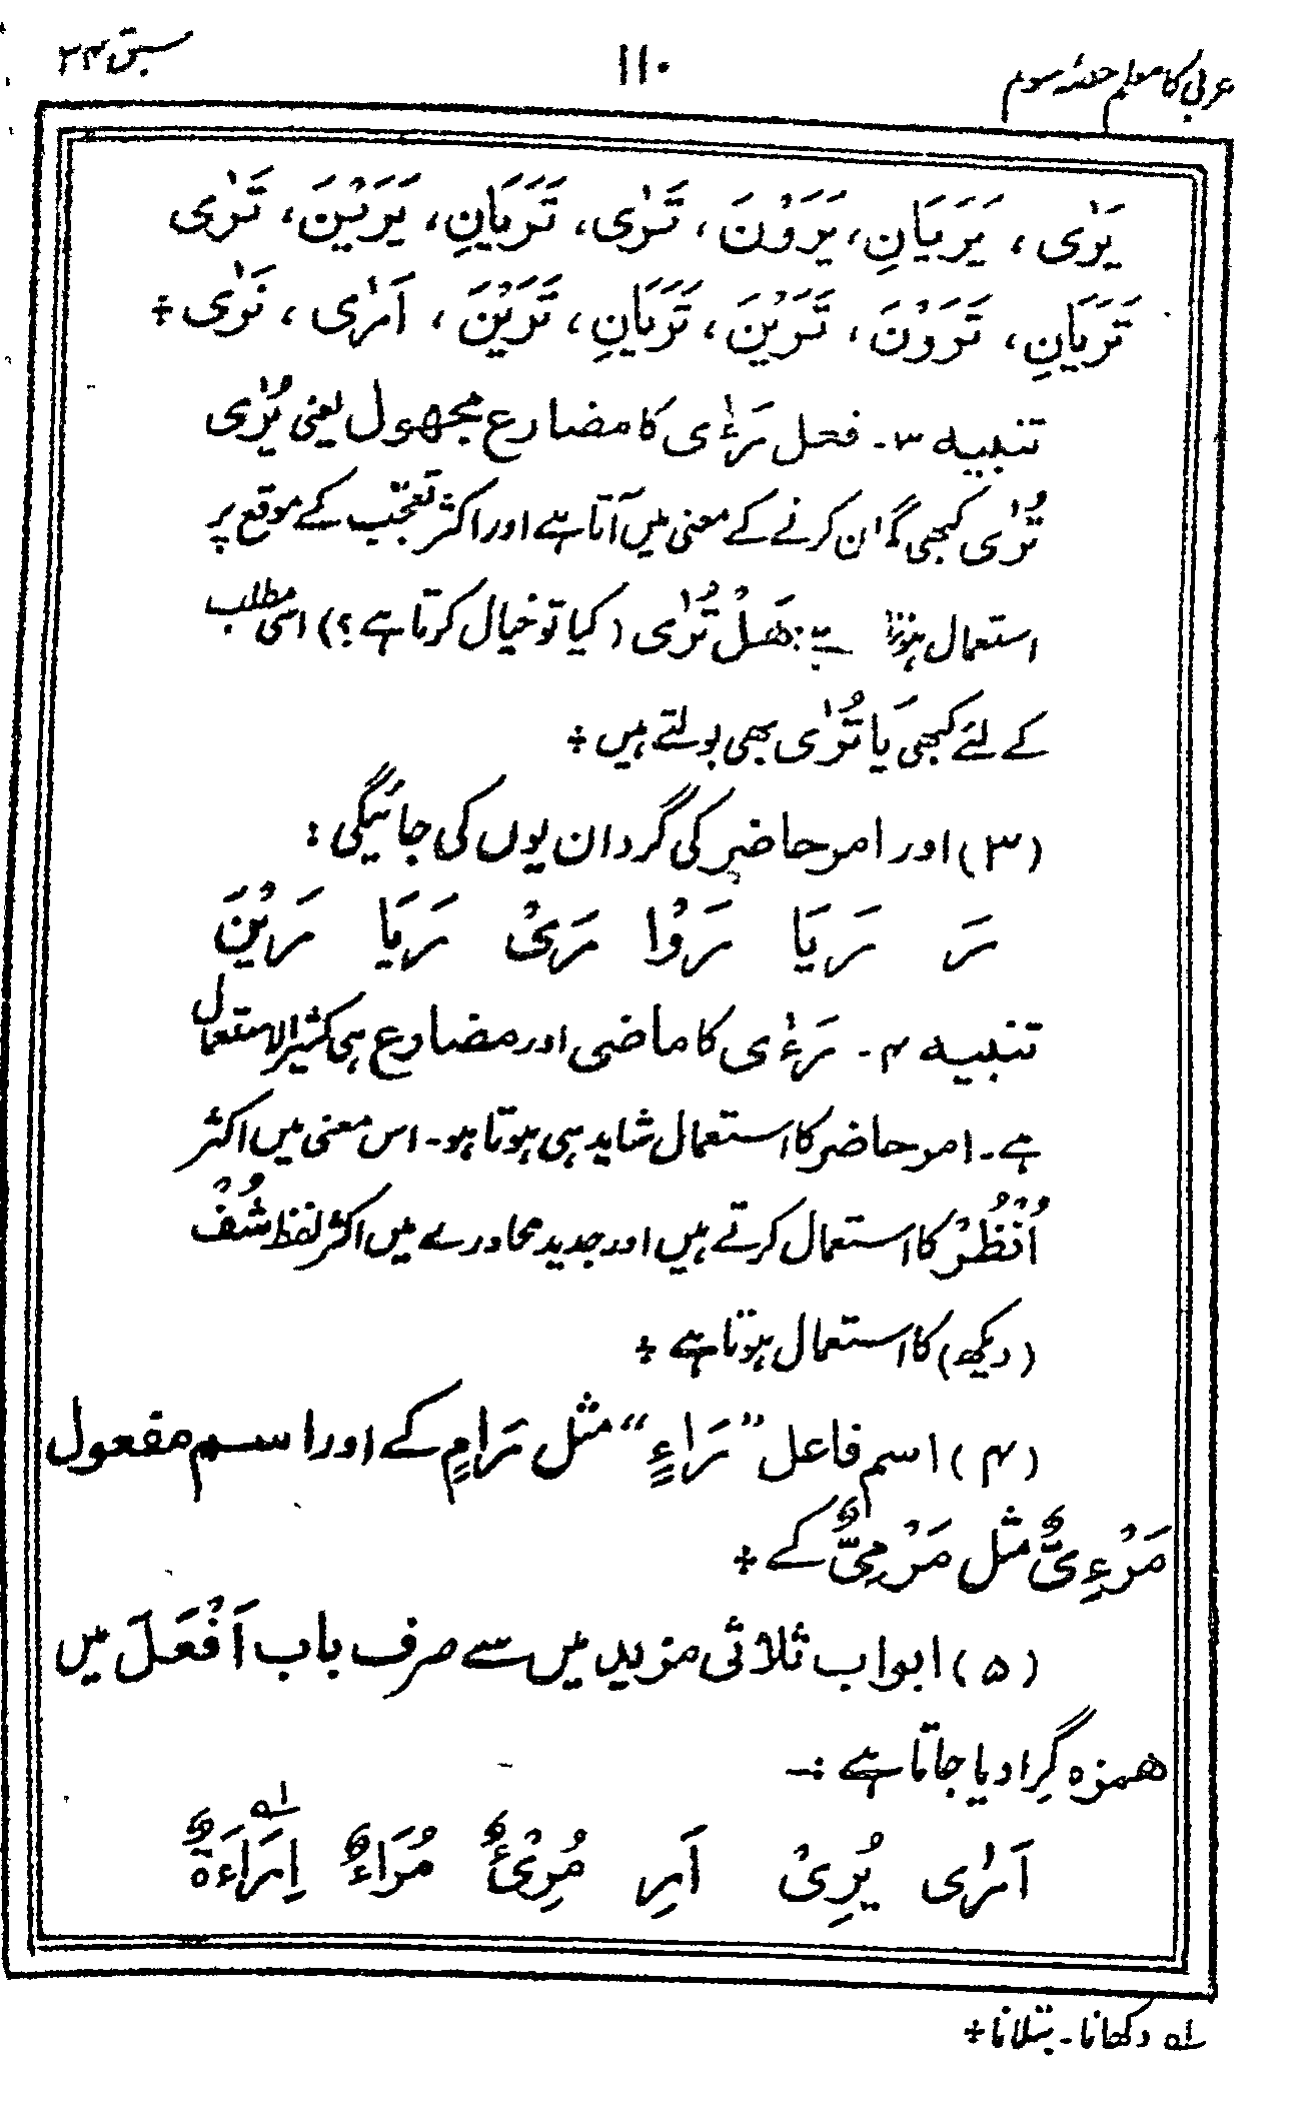 عربی کا معلم حصّہ سوم
۱۱۰
سبق ۳۴
يَرٰى ، يَرَيَانِ، يَرَوْنَ ، تَرٰى ، تَرَيَانِ ، يَرَيْنَ ، تَرٰى
تَرَيَانِ ، تَرَوْنَ ، تَرَيْنَ ، تَرَيَانِ ، تَرَيْنَ ، اَرٰى ، نَرٰى ÷
تنبیہ ۳۔ فعل رَءٰی کا مضارع مجہول یعنی یُرٰی
تُرٰی کبھی گمان کرنے کے معنی میں آتا ہے اور اکثر تعجّب کے موقع پر
استعمال ہوتا ہے: هَلْ تُرٰى (کیا تو خیال کرتا ہے؟) اسی مطلب
کے لئے کبھی یَا تُرٰى بھی بولتے ہیں ÷
(۳) اور امر حاضر کی گردان یوں کی جائیگی :
رَ رَيَا رَوْا رَىْ رَيَا رَيْنَ
تنبیہ ۴۔ رَءٰی کا ماضی اور مضارع ہی کثیر الاستعمال
ہے۔ امر حاضر کا استعمال شاید ہی ہوتا ہو۔ اس معنی میں اکثر
اُنْظُرْ کا استعمال کرتے ہیں اور جدید محاورے میں اکثر لفظ شُفْ
(دیکھ) کا استعمال ہوتا ہے ÷
(۴) اسم فاعل "رَاءٍ" مثل رَامٍ کے اور اسم مفعول
مَرْءِىٌّ مثل مَرْمِىٌّ کے ÷
(۵) ابواب ثلاثی مزید میں سے صرف باب اَفْعَلَ میں
ھمزہ گِرا دیا جاتا ہے :۔
اَرٰى يُرِىْ اَرِ مُرِىْءٌ مُرَاءٌ اِرَاءَةٌ ۱ه
۱ه دکھانا۔ بتلانا ÷